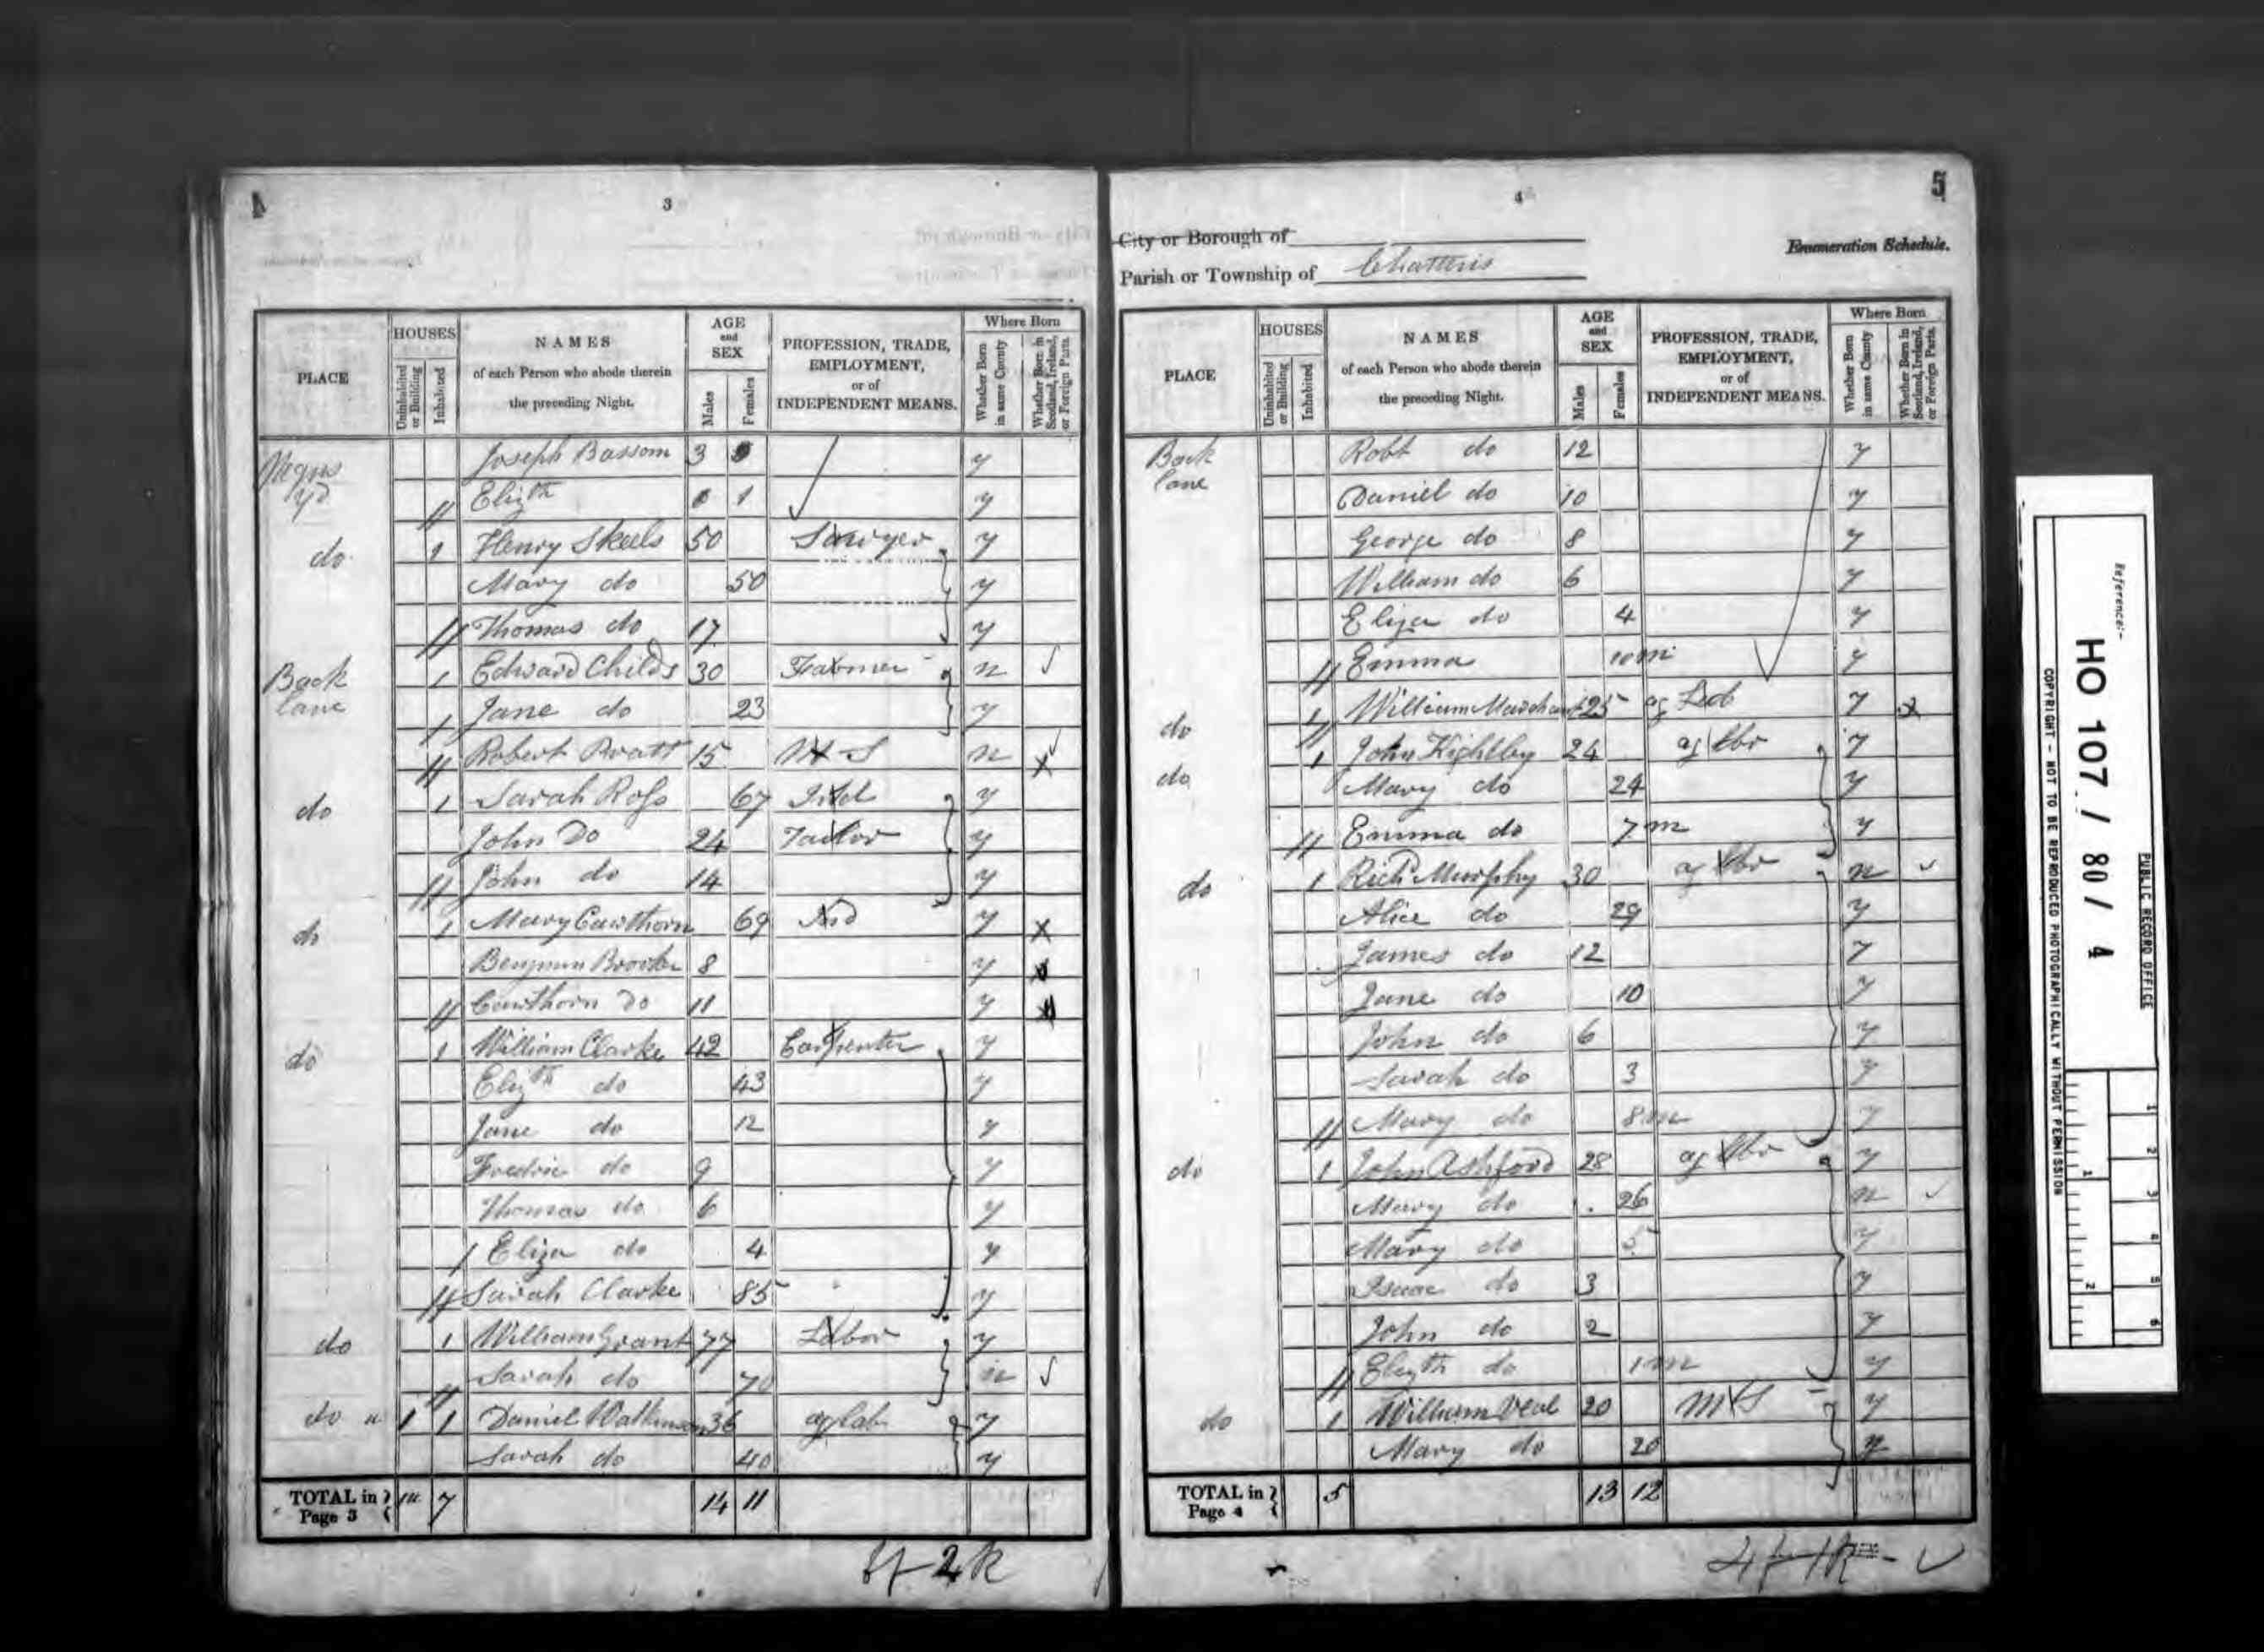 3
HOUSES
NAMES
AGE and SEX
PROFESSION, TRADE, EMPLOYMENT, or of INDEPENDENT MEANS.
Where Born
PLACE
Uninhabited or Building
Inhabited
of each Person who abode therein the preceding Night.
Males
Females
Whether Born in same County
Whether Born in Scotland, Ireland, or Foreign Parts.
Joseph Bassom 3 y
yd Elizth 1 y
do 1 Henry Skeels 50 Sawyer y
Mary do 50 y
Thomas do 17 y
Back lane 1 Edward Childs 30 Farmer n
1 Jane do 23 y
Robert Pratt 15 M S n
do 1 Sarah Ross 67 Ind y
John Do 24 Tailor y
John do 14 y
do 1 Mary Cawthorn 69 Ind y
Benjmin Brooker 8 y
Cawthorn Do 11 y
do 1 William Clarke 42 Carpenter y
Elizth do 43 y
Jane do 12 y
Fredric do 9 y
Thomas do 6 y
Eliza do 4 y
Sarah Clarke 85 y
do 1 William Grant 77 Labor y
Sarah do 70 n
do u 1 1 Daniel Watkinson 36 ag lab y
Sarah do 40 y
TOTAL in Page 3 1u 7 14 11
4
5
City or Borough of
Enumeration Schedule.
Parish or Township of Chatteris
HOUSES
NAMES
AGE and SEX
PROFESSION, TRADE, EMPLOYMENT, or of INDEPENDENT MEANS.
Where Born
PLACE
Uninhabited or Building
Inhabited
of each Person who abode therein the preceding Night.
Males
Females
Whether Born in same County
Whether Born in Scotland, Ireland, or Foreign Parts.
Back lane Robt do 12 y
Daniel do 10 y
George do 8 y
William do 6 y
Eliza do 4 y
Emma 10 m y
do 1 William Marchant 25 ag Lab y
do 1 John Kighlby 24 ag lbr y
Mary do 24 y
Emma do 7 m y
do 1 Richd Murphy 30 ag lbr n
Alice do 29 y
James do 12 y
Jane do 10 y
John do 6 y
Sarah do 3 y
Mary do 8 m y
do 1 John Ashford 28 ag lbr y
Mary do 26 n
Mary do 5 y
Isaac do 3 y
John do 2 y
Elizth do 1 m y
do 1 William Veal 20 M S y
Mary do 20
TOTAL in Page 4 5 13 12
Reference:-
HO 107 / 80 / 4
PUBLIC RECORD OFFICE
COPYRIGHT - NOT TO BE REPRODUCED PHOTOGRAPHICALLY WITHOUT PERMISSION
1
2
1
2
3
4
5
6